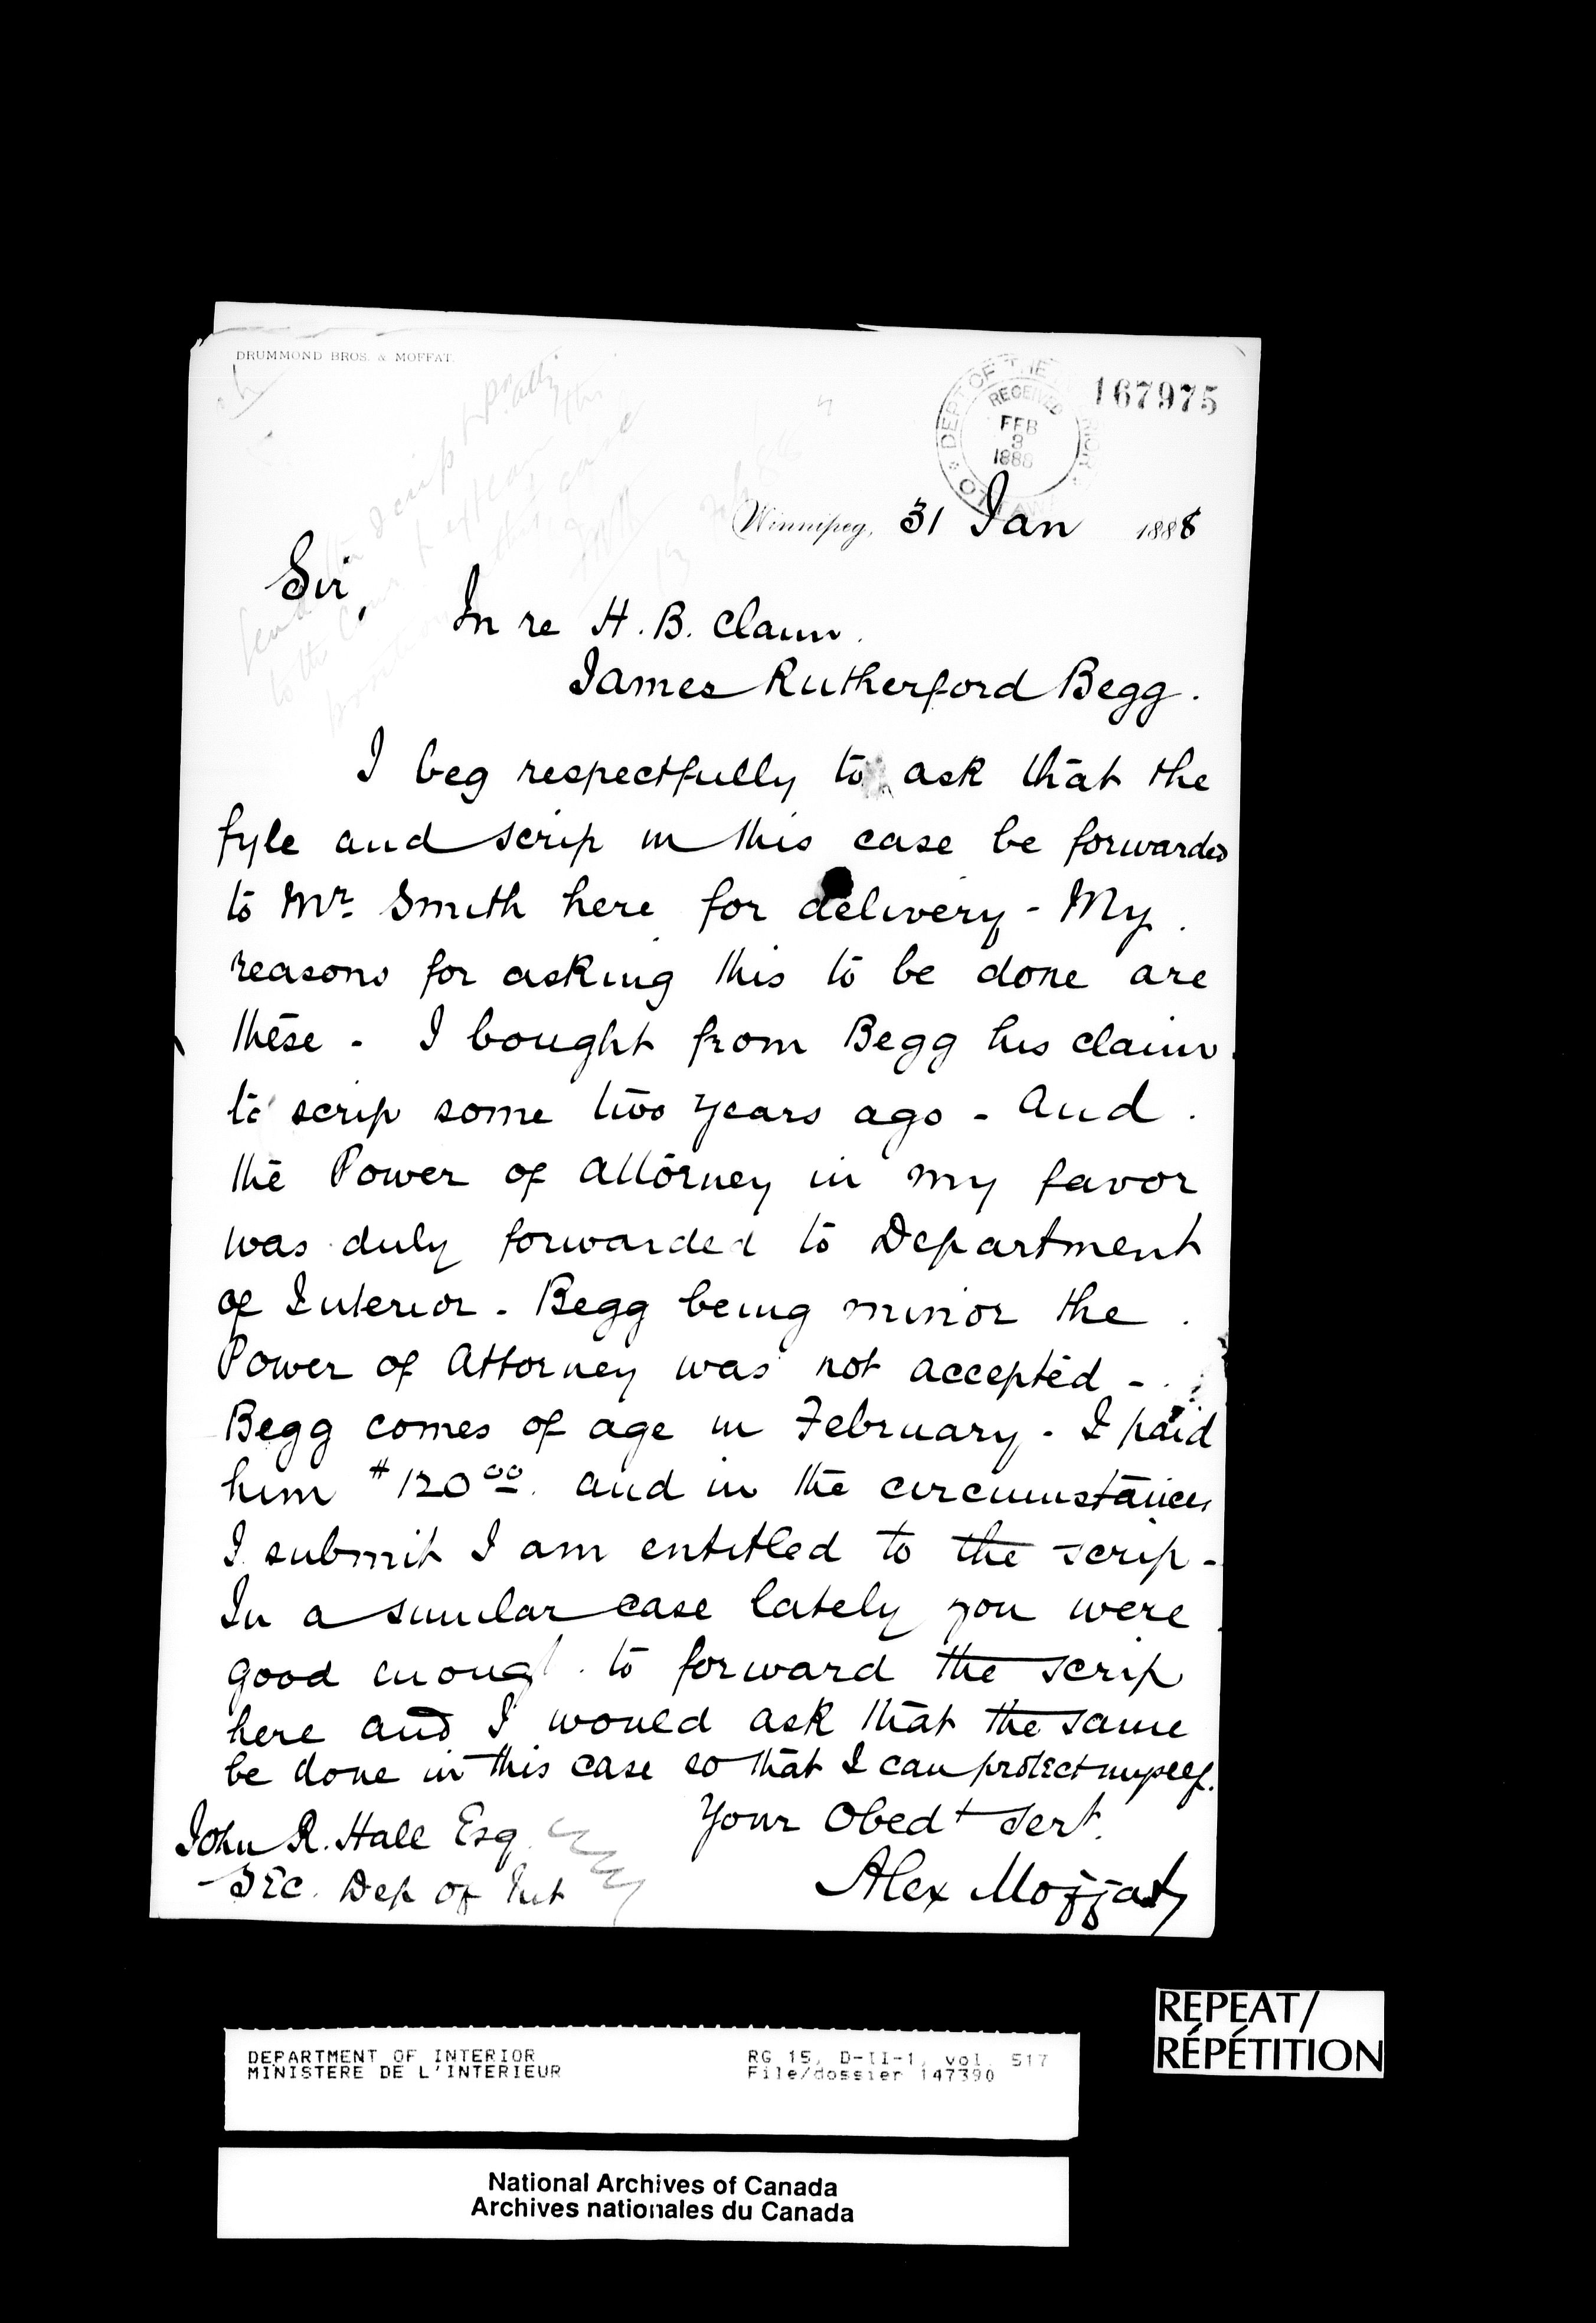 DRUMMOND BROS. & MOFFAT.
DEPT OF THE INTERIOR
RECEIVED
FEB
3
1888
OTTAWA
167975
Winnipeg, 31 Jan 1888
Sir,
In re H. B. Claim.
James Rutherford Begg.
I beg respectfully to ask that the
fyle and scrip in this case be forwarded
to Mr. Smith here for delivery - My
reasons for asking this to be done are
these - I bought from Begg his claim
to scrip some two years ago - and
the Power of Attorney in my favor
was duly forwarded to Department
of Interior - Begg being minor the
Power of Attorney was not accepted -
Begg comes of age in February - I paid
him $120.00 and in the circumstances
I submit I am entitled to the scrip -
In a similar case lately you were
good enough to forward the scrip
here and I would ask that the same
be done in this case so that I can protect myself.
Your Obedt Sert.
John R. Hall Esq
Sec. Dep of Int
Alex Moffat
REPEAT/
RÉPÉTITION
DEPARTMENT OF INTERIOR
MINISTERE DE L'INTERIEUR
RG 15, D-II-1, vol. 517
File/dossier 147390
National Archives of Canada
Archives nationales du Canada